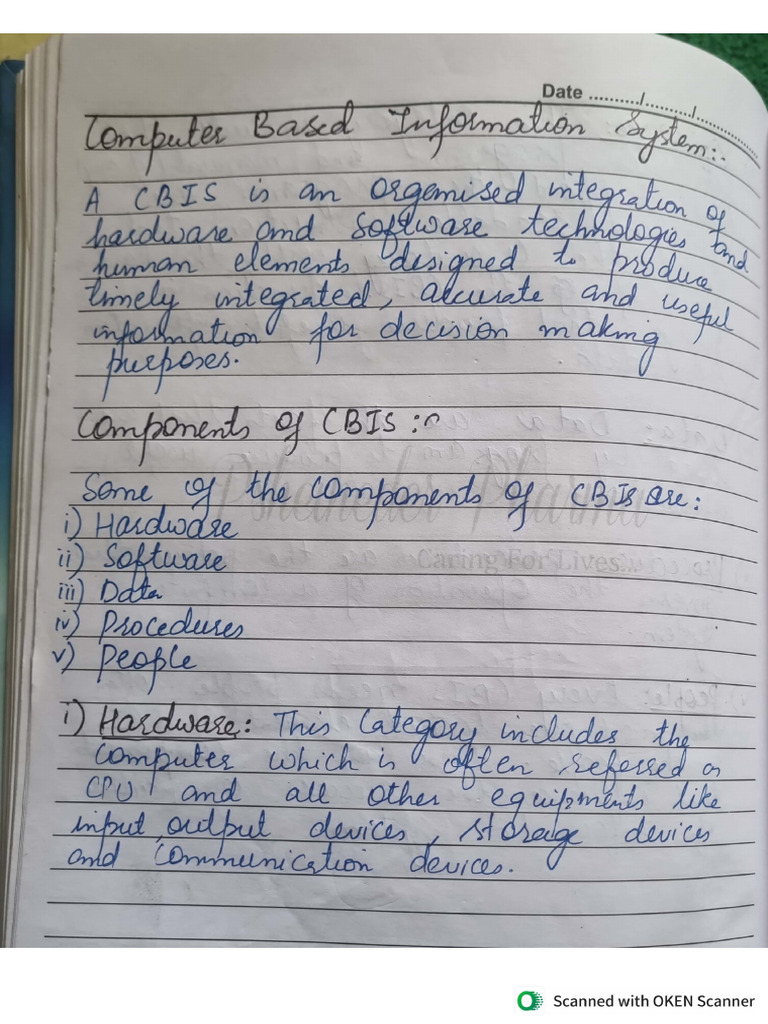 Date ........./......../............
Computer Based Information System:-
A CBIS is an organised integration of
hardware and software technologies and
human elements designed to produce
timely integrated, accurate and useful
information for decision making
purposes.
Components of CBIS :-
Some of the components of CBIS are:
i) Hardware
ii) Software
iii) Data
iv) Procedures
v) People
Caring For Lives...
i) Hardware: This Category includes the
computer which is often referred as
CPU and all other equipments like
input, output devices, storage devices
and communication devices.
Scanned with OKEN Scanner